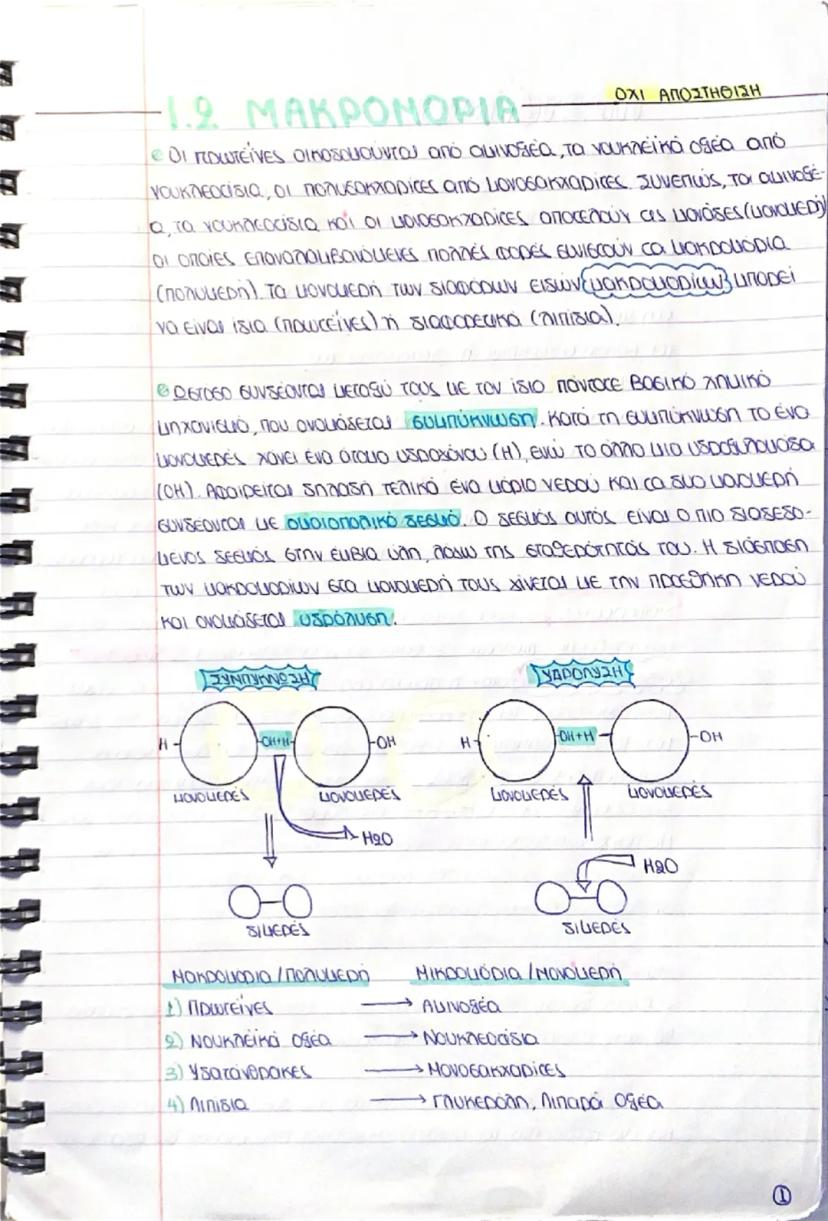 ΟΧΙ ΑΠΟΣΤΗΘΙΣΗ
1.2 ΜΑΚΡΟΜΟΡΙΑ
Οι πρωτεΐνες οικοδομούνται από αμινοξέα, τα νουκλεϊκά οξέα από
νουκλεοτίδια, οι πολυσακχαρίτες από μονοσακχαρίτες. Συνεπώς, τα αμινοξέ-
α, τα νουκλεοτίδια και οι μονοσακχαρίτες αποτελούν τις μονάδες (μονομερή)
οι οποίες επαναλαμβανόμενες πολλές φορές συνιστούν τα μακρομόρια
(πολυμερή). Τα μονομερή των διαφόρων ειδών μακρομορίων μπορεί
να είναι ίδια (πρωτεΐνες) ή διαφορετικά (λιπίδια).
Ωστόσο συνδέονται μεταξύ τους με τον ίδιο πάντοτε βασικό χημικό
μηχανισμό, που ονομάζεται συμπύκνωση. Κατά τη συμπύκνωση το ένα
μονομερές χάνει ένα άτομο υδρογόνου (Η), ενώ το άλλο μια υδροξυλομάδα
(ΟΗ). Αφαιρείται δηλαδή τελικά ένα μόριο νερού και τα δυο μονομερή
συνδέονται με ομοιοπολικό δεσμό. Ο δεσμός αυτός είναι ο πιο διαδεδο-
μένος δεσμός στην έμβια ύλη, λόγω της σταθερότητάς του. Η διάσπαση
των μακρομορίων στα μονομερή τους γίνεται με την προσθήκη νερού
και ονομάζεται υδρόλυση.
ΣΥΜΠΥΚΝΩΣΗ ΥΔΡΟΛΥΣΗ
Η OH+H OH H OH+H OH
μονομερές μονομερές μονομερές μονομερές
H2O
H2O
διμερές διμερές
Μακρομόρια/Πολυμερή Μικρομόρια/Μονομερή
1) Πρωτεΐνες → Αμινοξέα
2) Νουκλεϊκά οξέα → Νουκλεοτίδια
3) Υδατάνθρακες → Μονοσακχαρίτες
4) Λιπίδια → Γλυκερόλη, Λιπαρά Οξέα
1